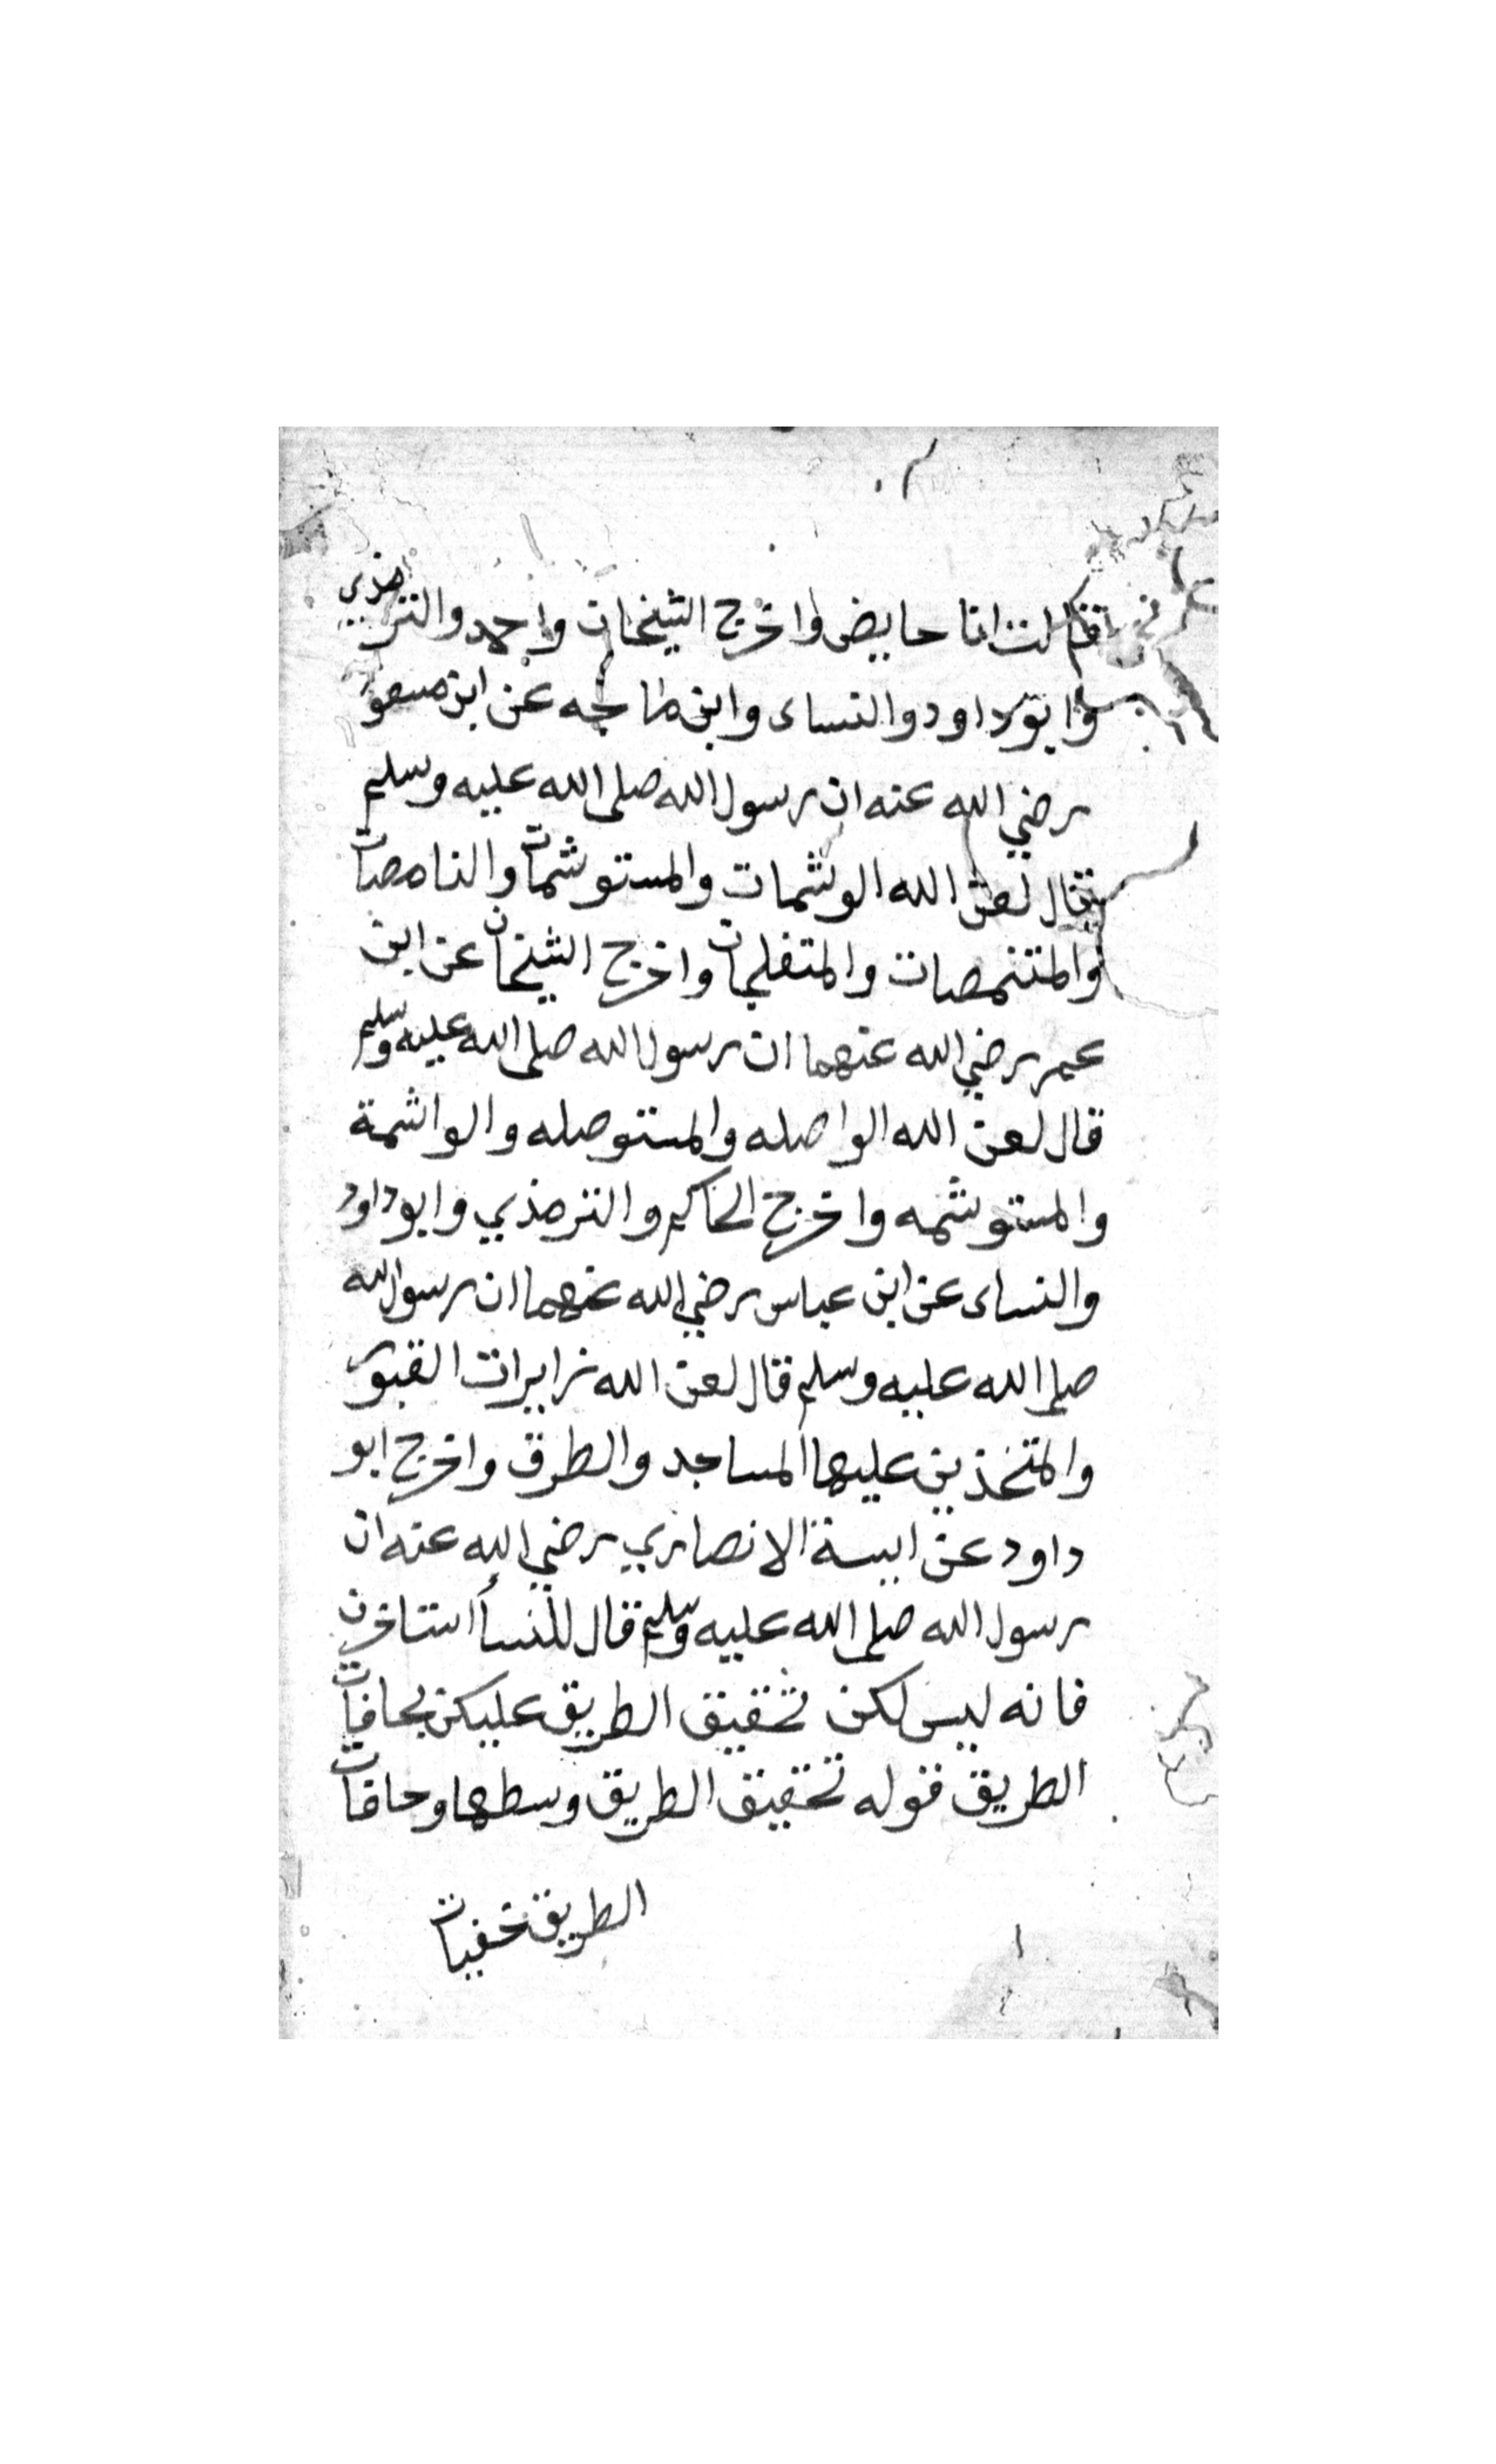 قالت انا حايض واخرج الشيخان واحمد والترمذي
وابو داود والنساى وابن ماجه عن ابن مسعو
رضي الله عنه ان رسول الله صلى الله عليه وسلم
قال لعن الله الوشمات والمستوشمات والنامصات
والمتنمصات والمتفلجات واخرج الشيخان عن ابن
عمر رضي الله عنهما ان رسول الله صلى الله عليه وسلم
قال لعن الله الواصله والمستوصله والواشمة
والمستوشمه واخرج الحاكم والترمذي وابو داود
والنساى عن ابن عباس رضي الله عنهما ان رسول الله
صلى الله عليه وسلم قال لعن الله زايرات القبور
والمتخذين عليها المساجد والطرق واخرج ابو
داود عن ابيسة الانصاري رضي الله عنه ان
رسول الله صلى الله عليه وسلم قال للنسأ استاخرن
فانه ليس لكن تحقيق الطريق عليكن بحافات
الطريق قوله تحقيق الطريق وسطها وحافات
الطريق